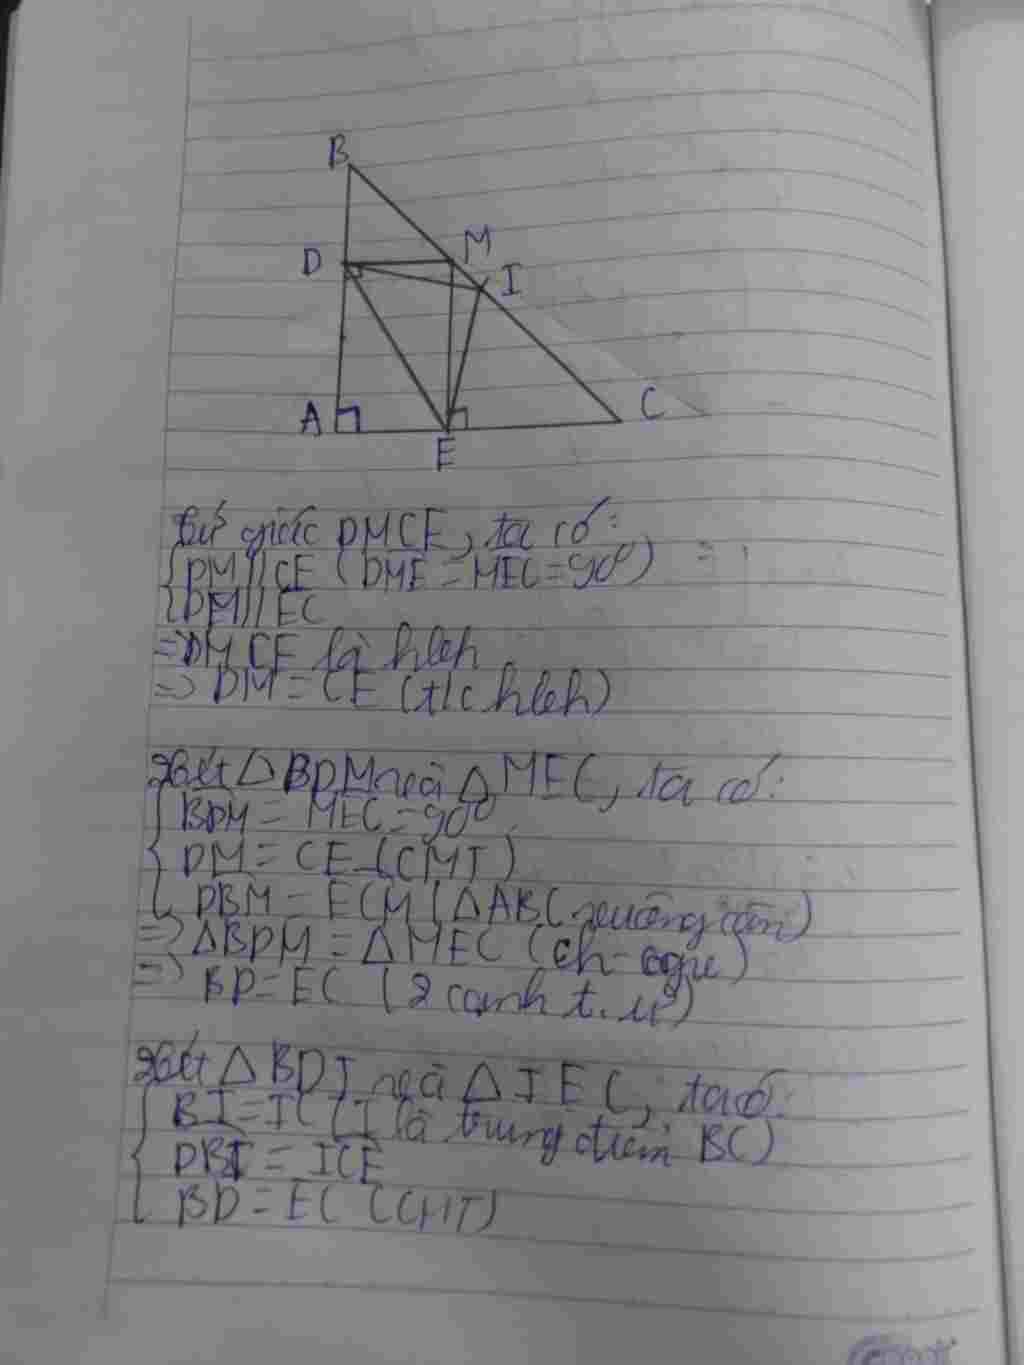 B
D
M
I
A
E
C
tứ giác DMCE, ta có:
DM // CE (DME = MEC = 90°)
DM // EC
=> DMCE là hbh
=> DM = CE (t/c hbh)
Xét △ BDM và △ MEC, ta có:
BDM = MEC = 90°
DM = CE (CMT)
DBM = ECM (△ABC vuông cân)
=> △BDM = △ MEC (ch-cgn)
=> BD = EC (2 cạnh t.ư)
Xét △ BDI và △ IEC, ta có:
BI = IC (I là trung điểm BC)
DBI = ICE
BD = EC (CMT)